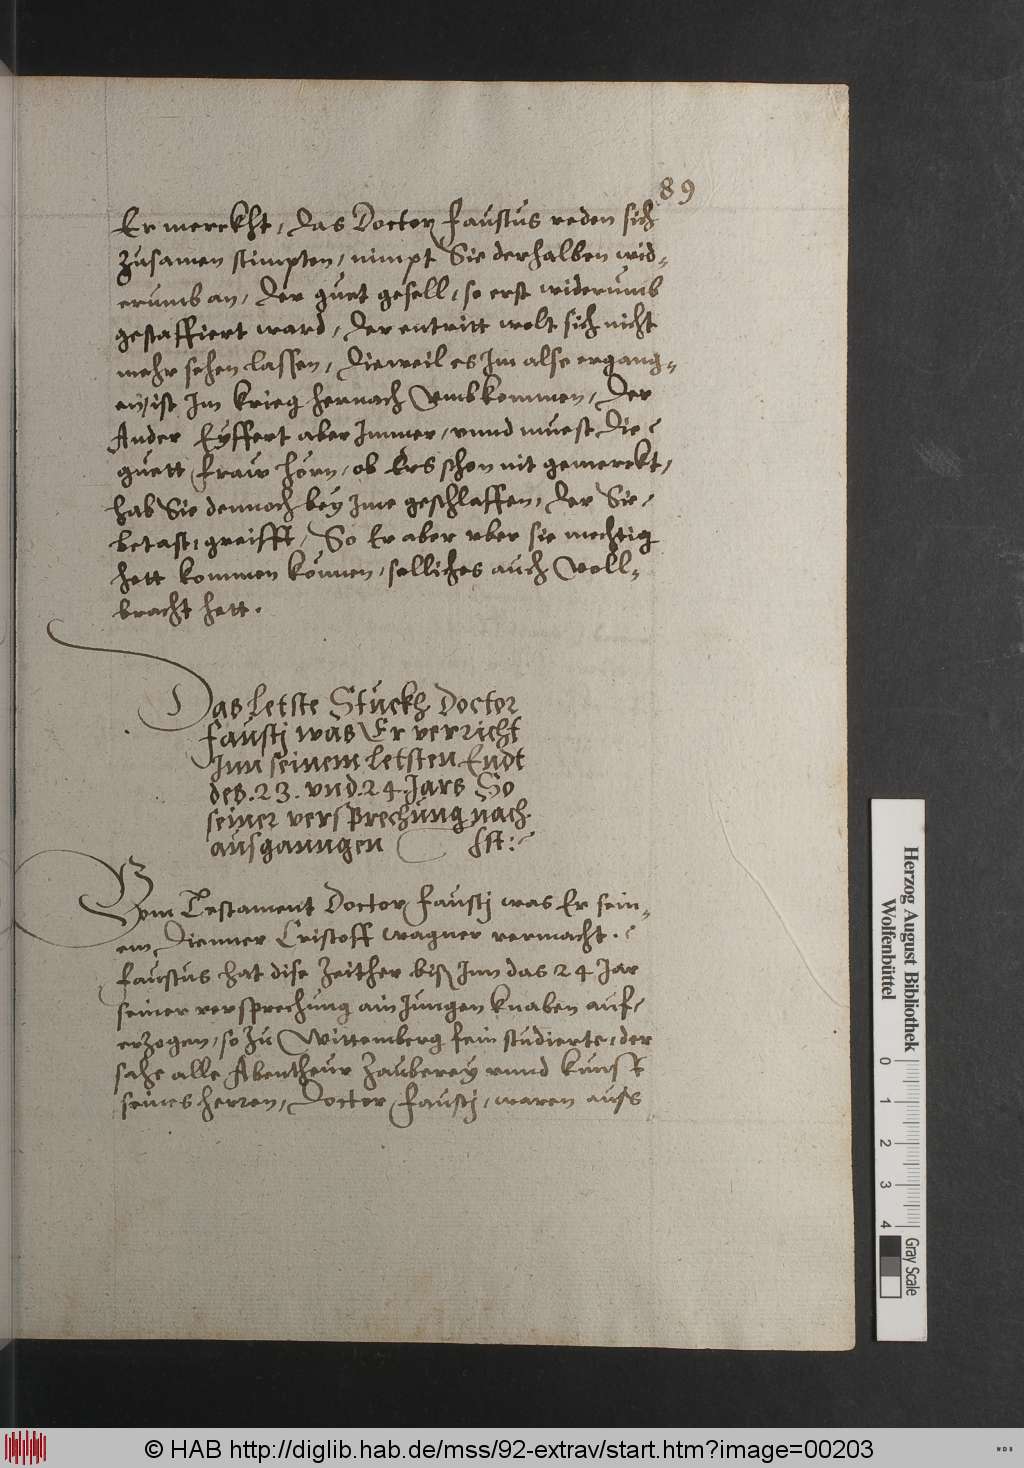 89
Er merckht, das Doctor Faustus reden sich
zusamen stimpten, nimpt Sie derhalben wid-
erumb an, der guet gesell, so erst widerumb
gestaffiert ward, der entritt wolt sich nicht
mehr sehen lassen, dieweil es Im also ergang-
en, ist Im krieg hernach Vmbkommen, der
Ander Eyffert aber Immer, vnnd muest die
guett fraw hörn, ob Ers schon nit gemerckt,
hab Sie dennoch bey Ime geschlaffen, der Sie
betast, greifft, So Er aber vber sie mechtig
hett kommen können, solliches auch Voll-
bracht hett.
Das letste Stückh Doctor
Faustj was Er verricht
Inn seinem letsten Endt
des .23. vnd .24. Jars So
seiner versprechung nach
ausganngen Ist:
Vom Testament Doctor Faustj was Er sein-
em Dienner Cristoff Wagner vermacht.
Faustus hat dise Zeither biß Inn das 24 Jar
seiner versprechung ain Jungen knaben auf-
erzogen, so zu Wittemberg fein studierte, der
sahe alle Abentheur Zauberey vnnd kunst
seines herren, Doctor Faustj, waren auss
Herzog August Bibliothek
Wolfenbüttel
0 1 2 3 4
Gray Scale
© HAB http://diglib.hab.de/mss/92-extrav/start.htm?image=00203